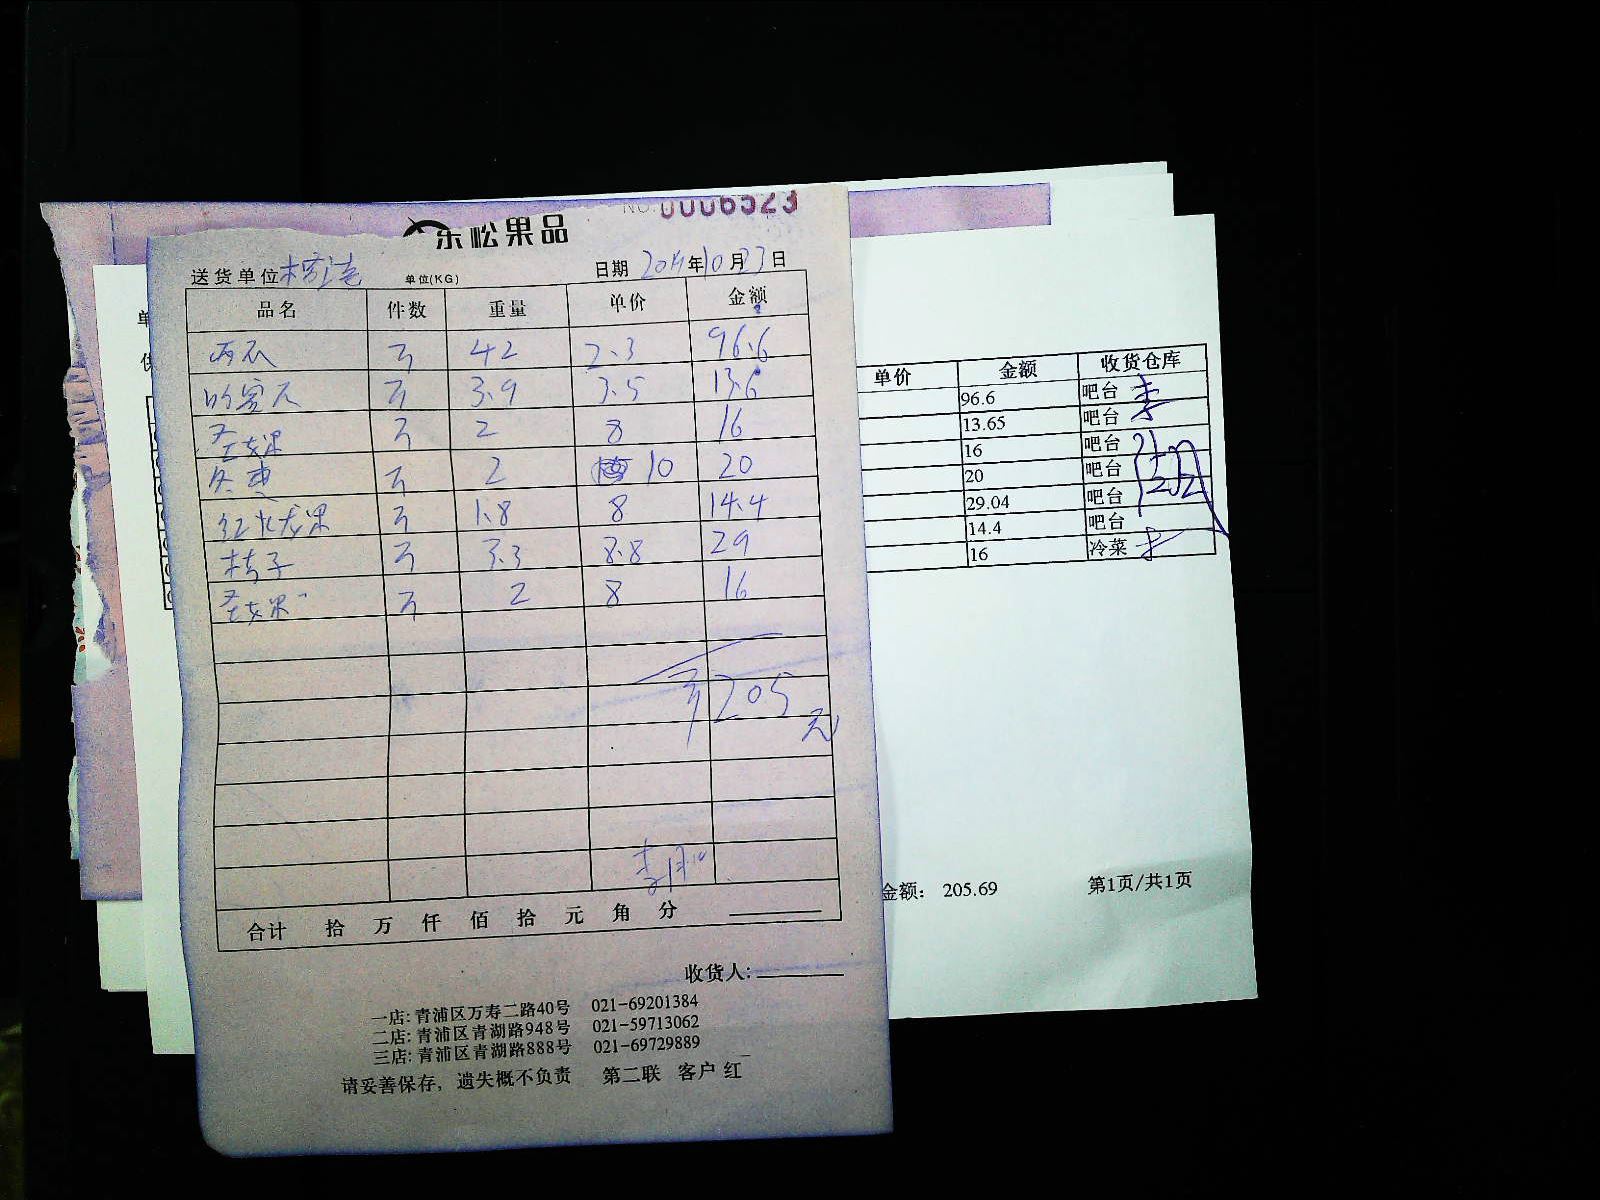 NO.0006523
东松果品
送货单位 单位(KG) 日期 年10月23日
品名 件数 重量 单价 金额
西瓜 42 2.3 96.6
哈密瓜 3.9 3.5 13.6
圣女果 2 8 16
冬枣 2 10 20
红火龙果 1.8 8 14.4
桔子 3.3 8.8 29
圣女果 2 8 16
205元
合计 拾 万 仟 佰 拾 元 角 分
收货人:
一店: 青浦区万寿二路40号 021-69201384
二店: 青浦区青湖路948号 021-59713062
三店: 青浦区青湖路888号 021-69729889
请妥善保存，遗失概不负责 第二联 客户 红
单价 金额 收货仓库
96.6 吧台
13.65 吧台
16 吧台
20 吧台
29.04 吧台
14.4 吧台
16 冷菜
金额: 205.69 第1页/共1页